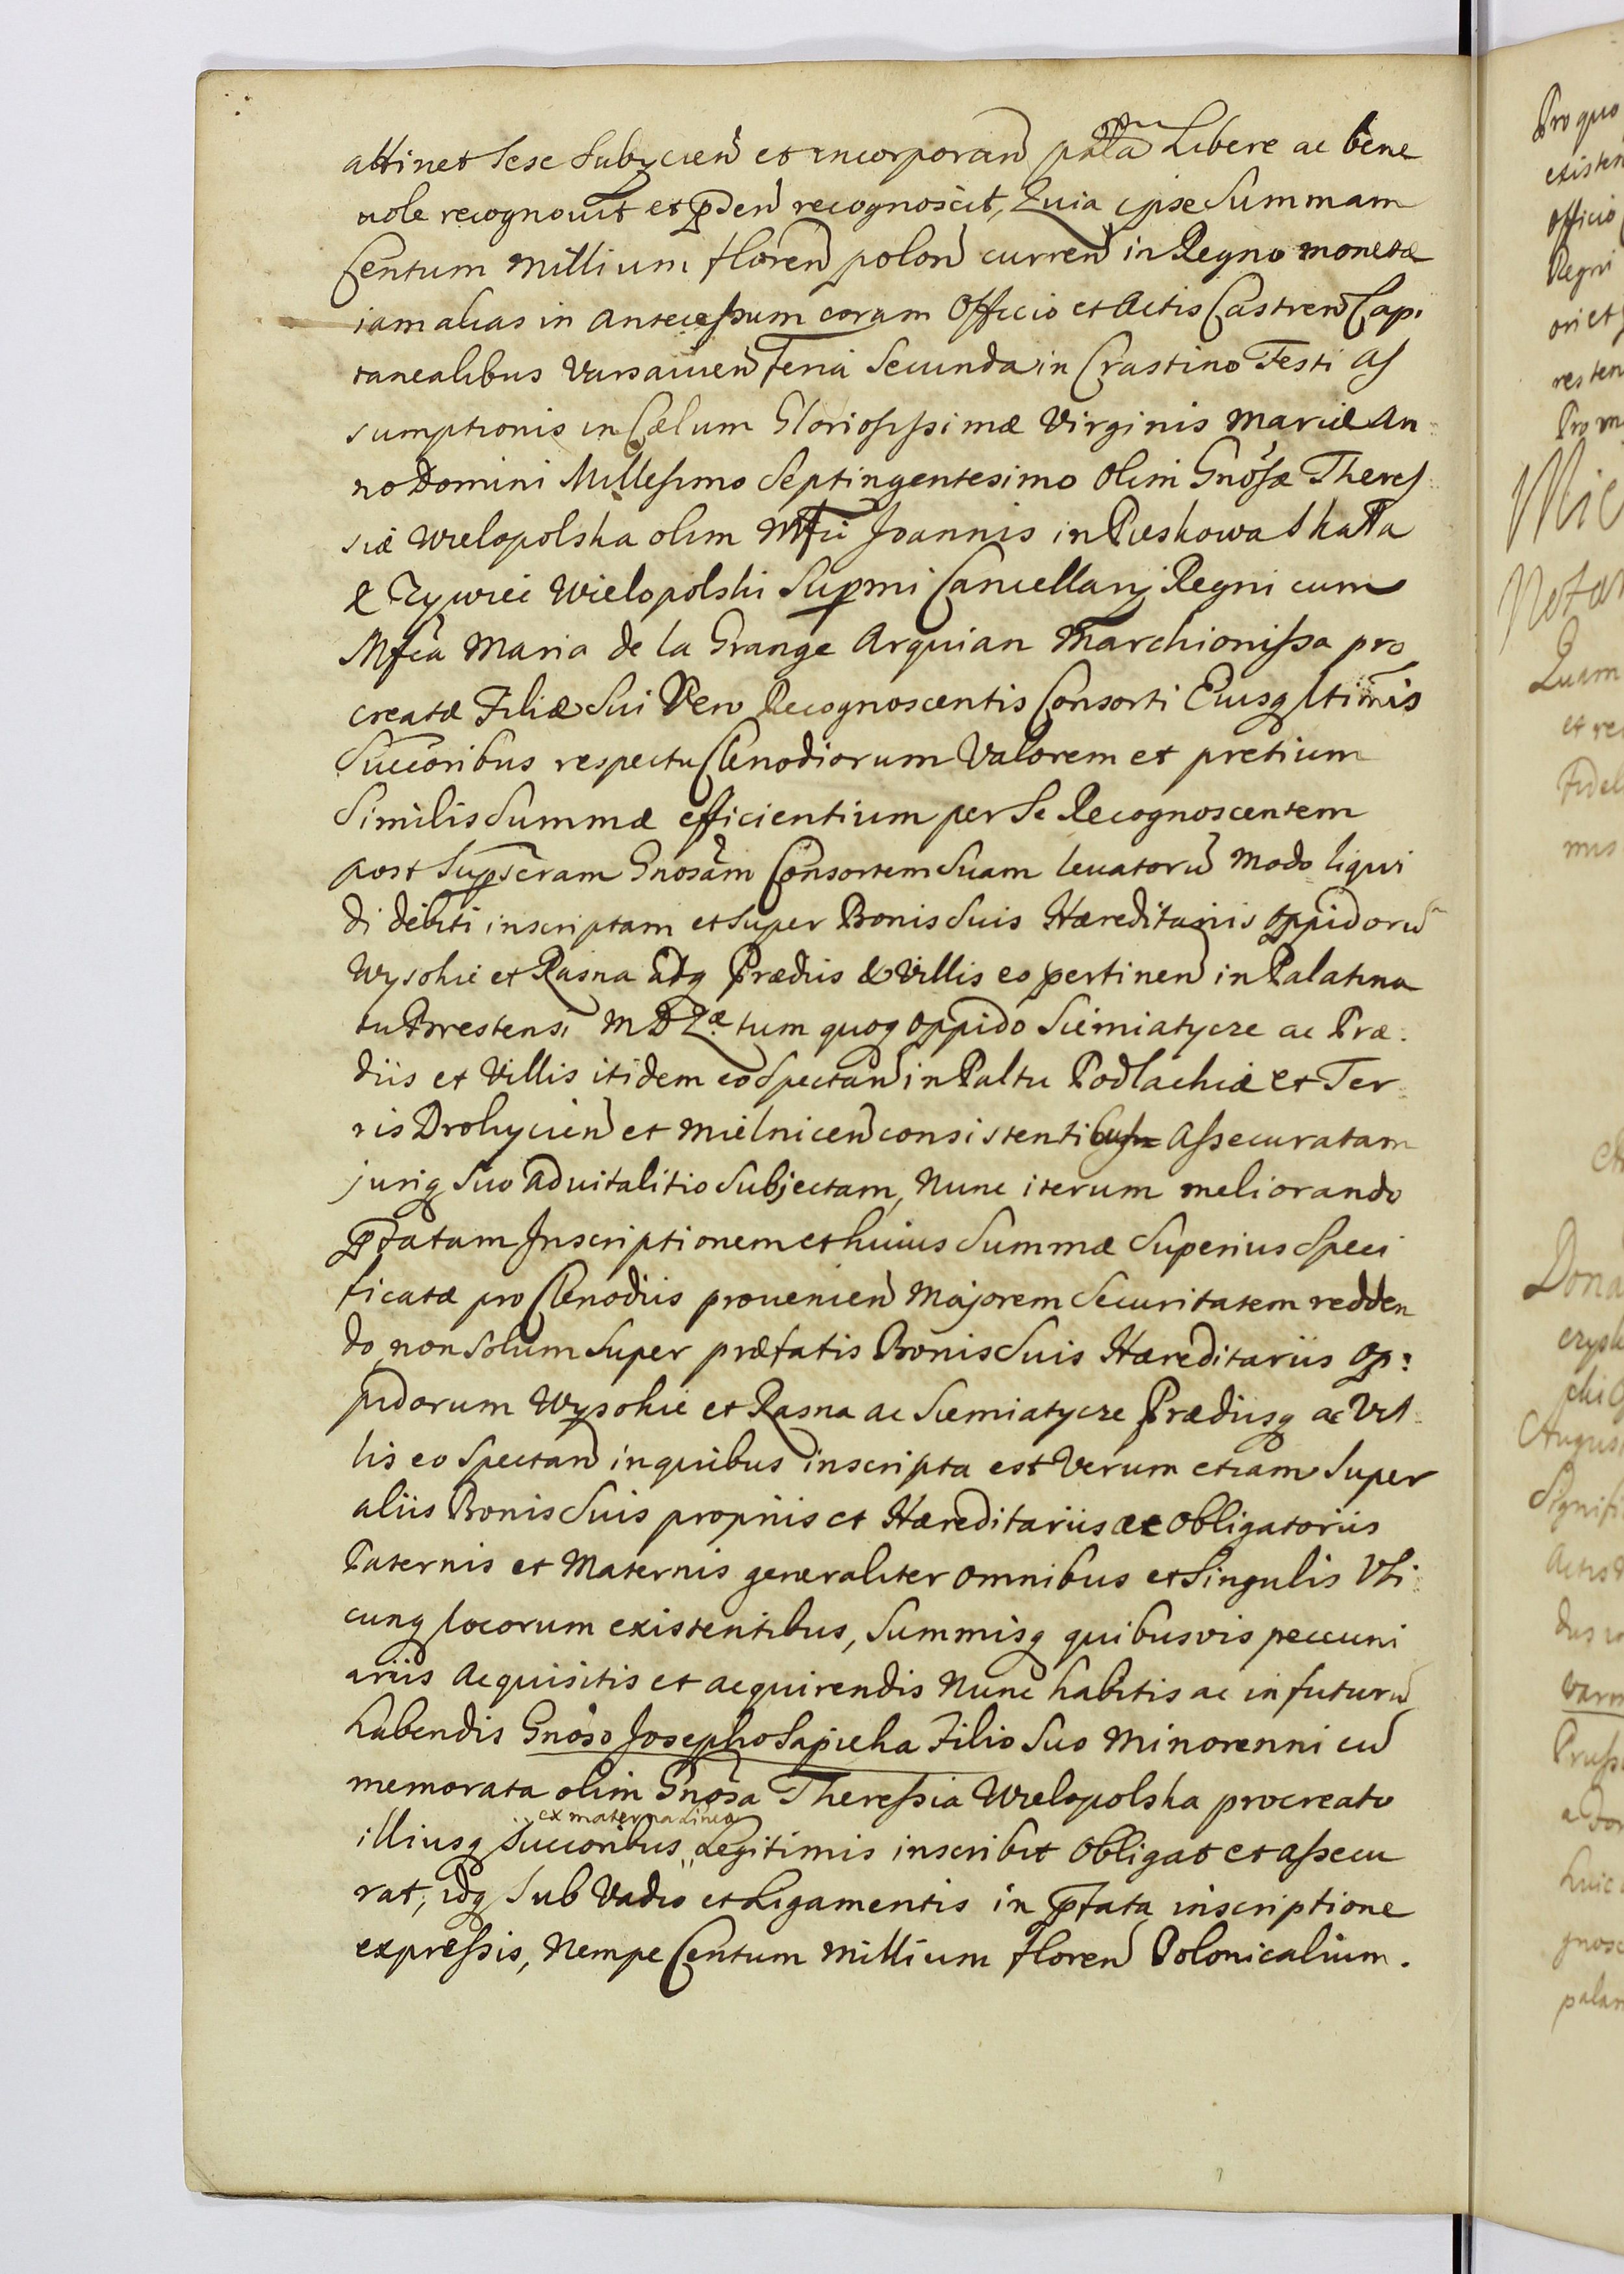 attinet sese Subycien et incorporan palā Libere ac bene
uole recognouit et pden recognoscit, Quia ipse Summam
Centum Millium floren polon curren in Regno moneta
iam alias in antecessum coram Officio et Actis Castren Capi
tanealibus Varsauien feria Secunda in Crastino Festi as
sumptionis in Cælum Gloriosissimæ Virginis Mariæ An
no Domini Millesimo Septingentesimo Olim Gnosæ Theres
siæ Wielopolska olim Mfci Joannis in Pieskowa Skała
& Zywiec Wielopolski Supmi Cancellarij Regni cum
Mfca Maria de la Grange Arquian Marchionissa pro
creatæ Filiæ Sui Vero Recognoscentis Consorti Eiusq Ltimis
Succoribus respectu Clenodiorum Valorem et pretium
Similis Summæ efficientium per Se Recognoscentem
post Supscram Gnosam Consortem Suam leuatorū modo liqui
di debiti inscriptam et super Bonis Suis Hæreditariis Oppidorū
Wysokie et Rasna adq Prædiis & Villis eo pertinen in Palatina
tu Brestensi M D Læ tum quoq oppido Siemiatycze ac Præ
diis et Villis itidem eo Spectan in Paltu Podlachiæ et Ter
ris Drohycien et Mielnicen consistentibus Assecuratam
juriq Suo aduitalitio Subjectam, Nunc iterum meliorando
pfatam Inscriptionem et huius Summæ Superius Speci
ficatæ pro Clenodiis prouenien Majorem Securitatem redden
do, non Solum Super præfatis Bonis Suis Hæreditariis Op
pidorum Wysokie et Rasna ac Siemiatycze Prædiisq ac Vil
lis eo Spectan in quibus inscripta est Verum etiam Super
aliis Bonis Suis propriis et Hæreditariis ac Obligatoriis
Paternis et Maternis generaliter omnibus et Singulis Vbi
cunq locorum existentibus, Summisq quibusvis peccuni
ariis Acquisitis et acquirendis Nunc habitis ac in futurū
habendis Gnoso Josepho Sapieha Filio Suo Minorenni cū
memorata olim Gnosa Theressia Wielopolska procreato
ex materna linea
illiusq Succoribus Legitimis inscribit Obligat et assecu
rat, idq Sub Vadio et Ligamentis in pfata inscriptione
expressis, Nempe Centum Millium floren Polonicalium.